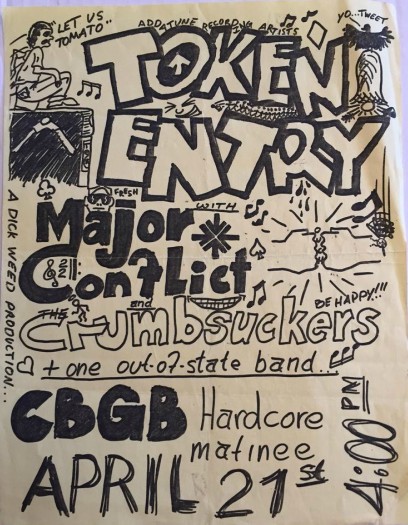 LET US
TOMATO..
ADDATUNE RECORDING ARTISTS
YO...TWEET
TOKEN
ENTRY
FRESH
WITH
Major
Conflict
and
THE
Crumbsuckers
BE HAPPY!!!
+ one out-of-state band..
A DICK WEED PRODUCTION...
CBGB Hardcore
matinee
APRIL 21st
4:00 PM